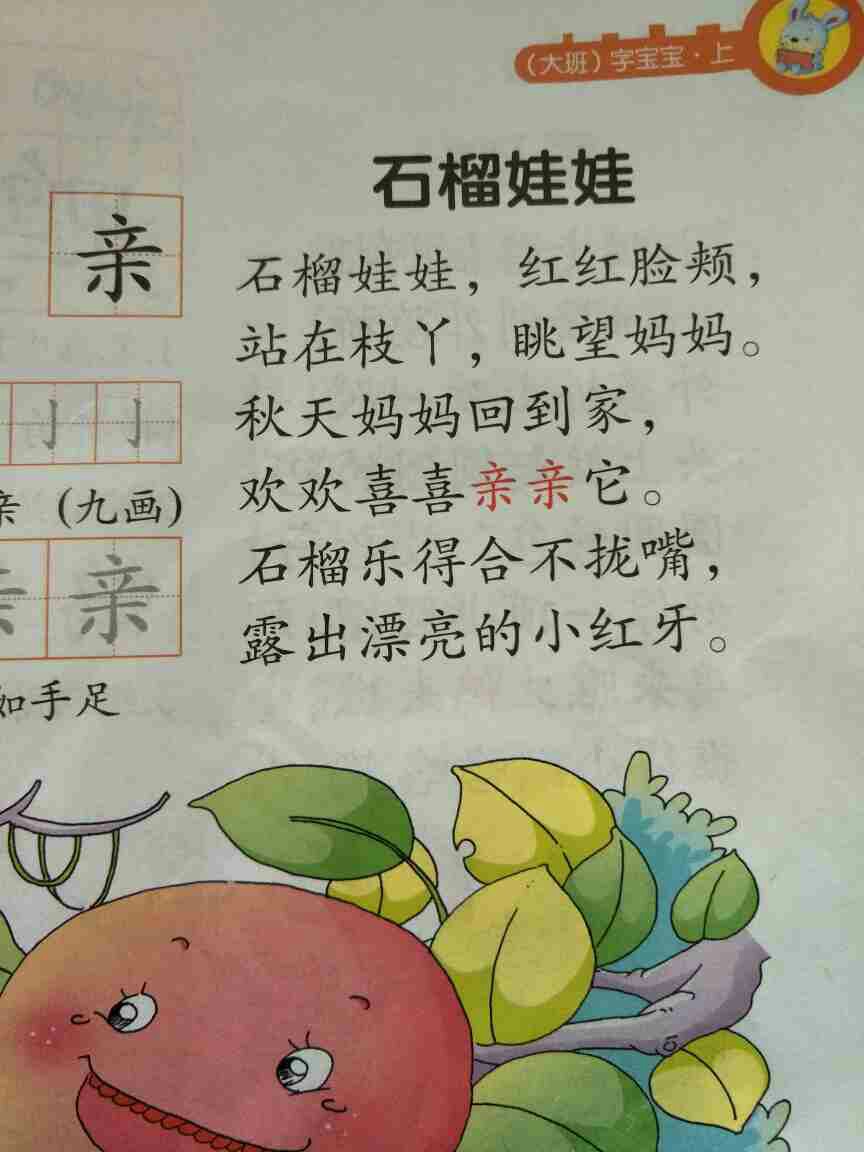 (大班)字宝宝·上
石榴娃娃
亲
石榴娃娃，红红脸颊，
站在枝丫，眺望妈妈。
秋天妈妈回到家，
欢欢喜喜亲亲它。
亲（九画）
石榴乐得合不拢嘴，
亲亲
露出漂亮的小红牙。
如手足